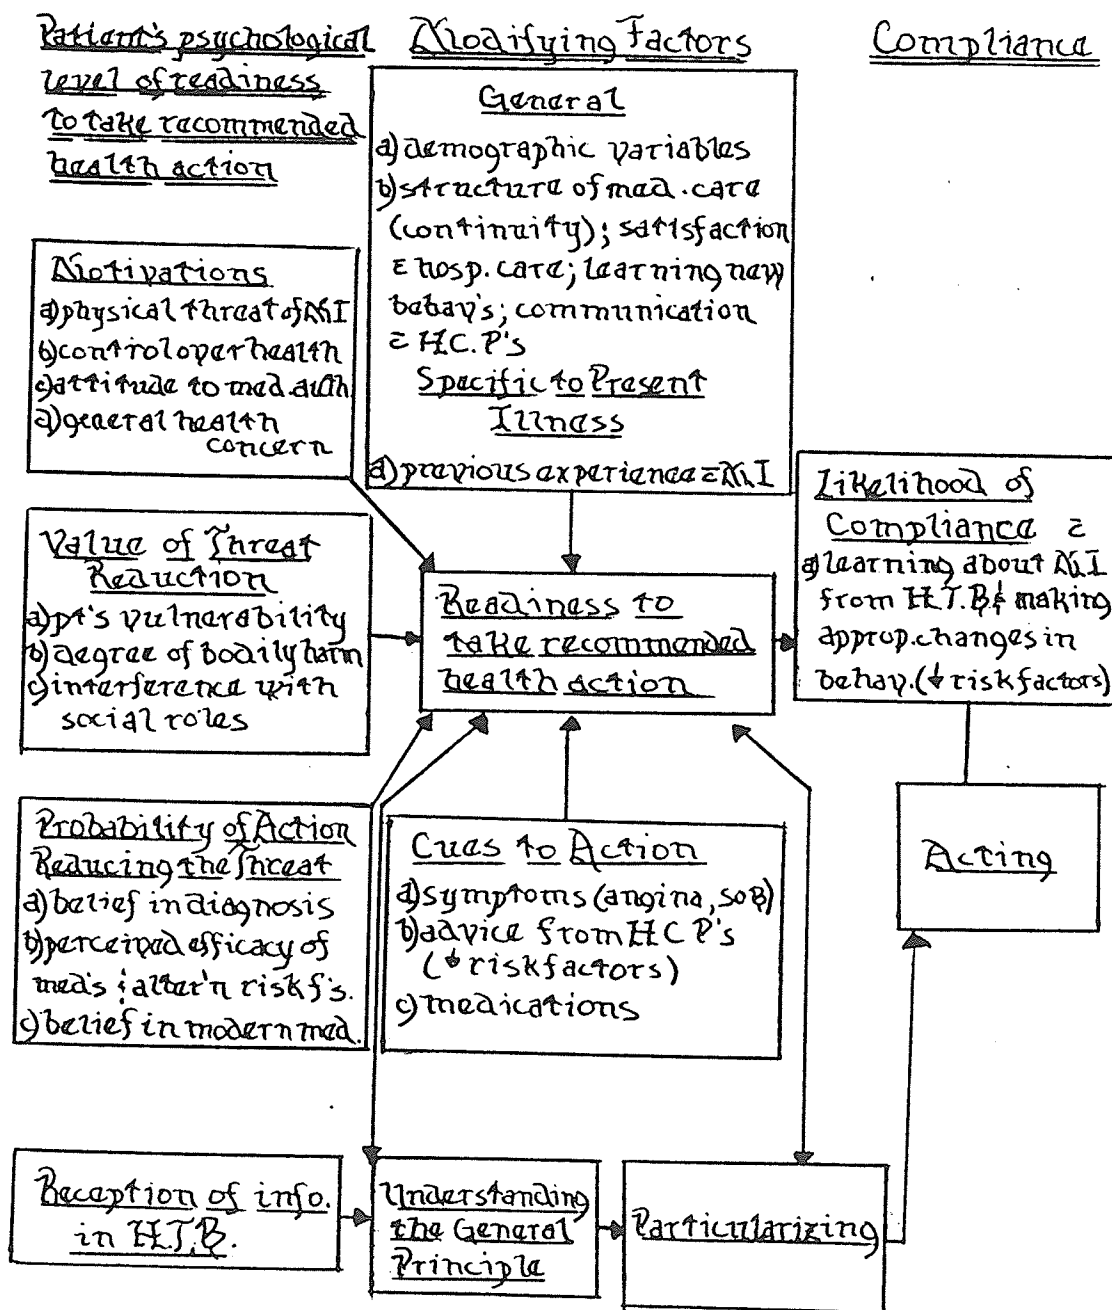 Patient's psychological
level of readiness
to take recommended
health action
Modifying Factors
Compliance
General
a) demographic variables
b) structure of med. care
(continuity); satisfaction
c̄ hosp. care; learning new
behav's; communication
c̄ H.C.P's
Specific to Present
Illness
a) previous experience c̄ MI
Motivations
a) physical threat of MI
b) control over health
c) attitude to med. auth.
d) general health
concern
Value of Threat
Reduction
a) pt's vulnerability
b) degree of bodily harm
c) interference with
social roles
Readiness to
take recommended
health action
Likelihood of
Compliance c̄
a) learning about MI
from H.T.B. & making
approp. changes in
behav. (↓ risk factors)
Probability of Action
Reducing the Threat
a) belief in diagnosis
b) perceived efficacy of
med's & alter'n risk f's.
c) belief in modern med.
Cues to Action
a) symptoms (angina, SOB)
b) advice from HCP's
(↓ risk factors)
c) medications
Acting
Reception of info.
in H.T.B.
Understanding
the General
Principle
Particularizing